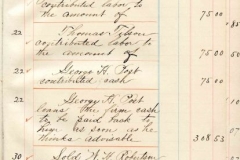 contributed labor to
the amount of 75 00
22 Thomas Tilson
contributed labor to
the amount of 75 00
22 George H. Post
contributed cash 75 00
22 George H. Post
loans the firm cash
to be paid back to
him as soon as he
thinks advisable 308 53
30 Sold W. H. Robertson